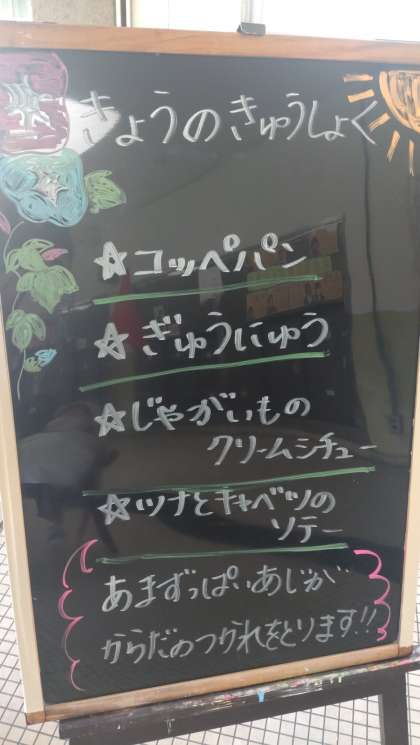 きょうのきゅうしょく
☆コッペパン
☆ぎゅうにゅう
☆じゃがいもの
クリームシチュー
☆ツナとキャベツの
ソテー
あまずっぱいあじが
からだのつかれをとります!!